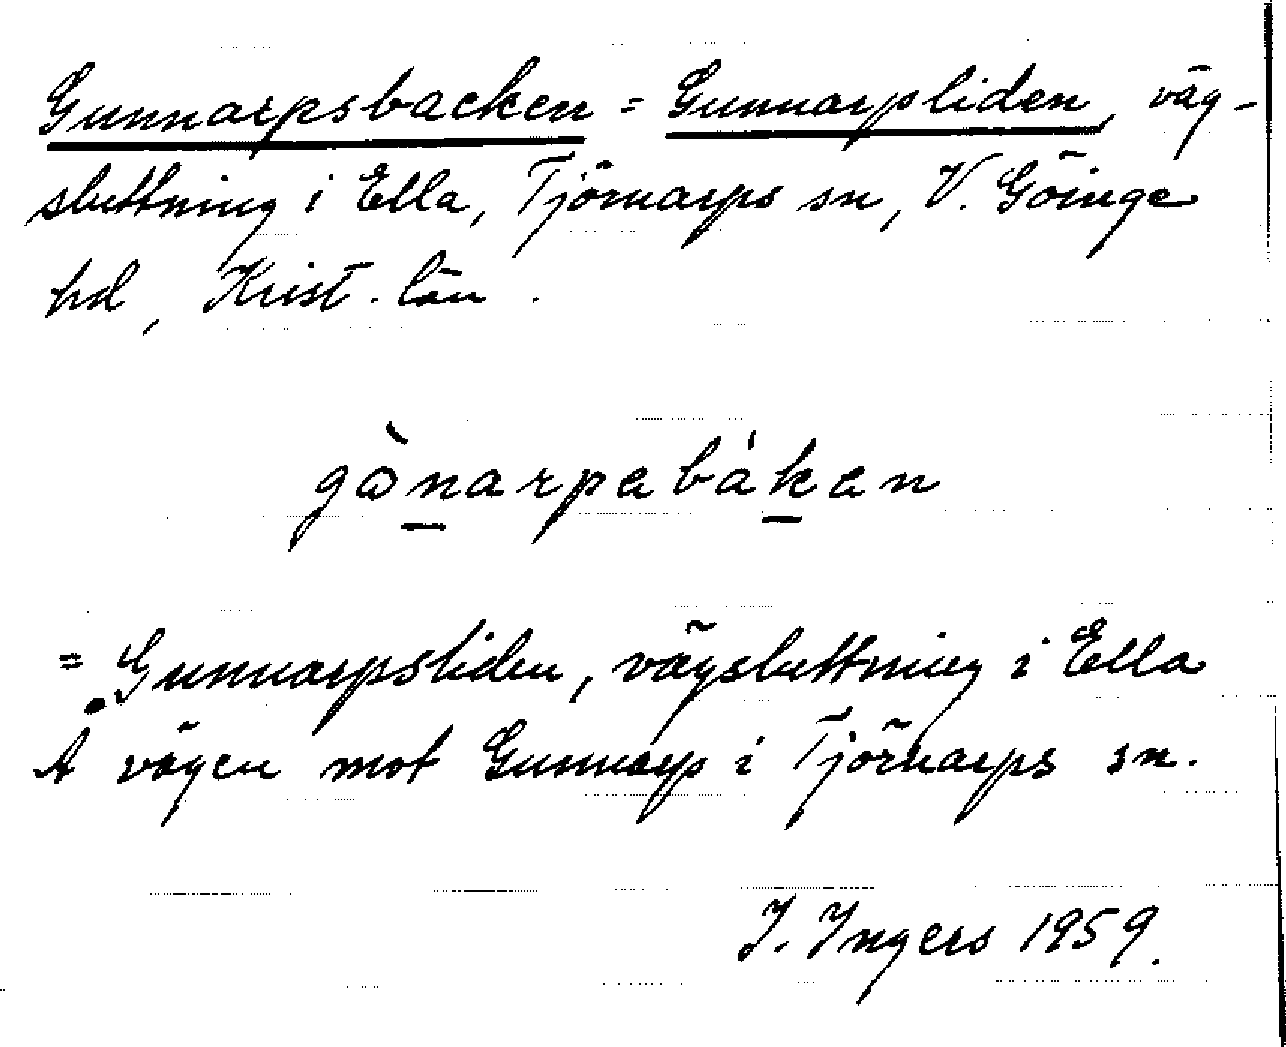 Gunnarpsbacken = Gunnarpliden, väg-
sluttning i Ella, Tjörnarps sn, V. Göinge
hd, Krist. län.
gònarpabákan
= Gunnarpsliden, vägsluttning i Ella
Å vägen mot Gunnarp i Tjörnarps sn.
I. Ingers 1959.